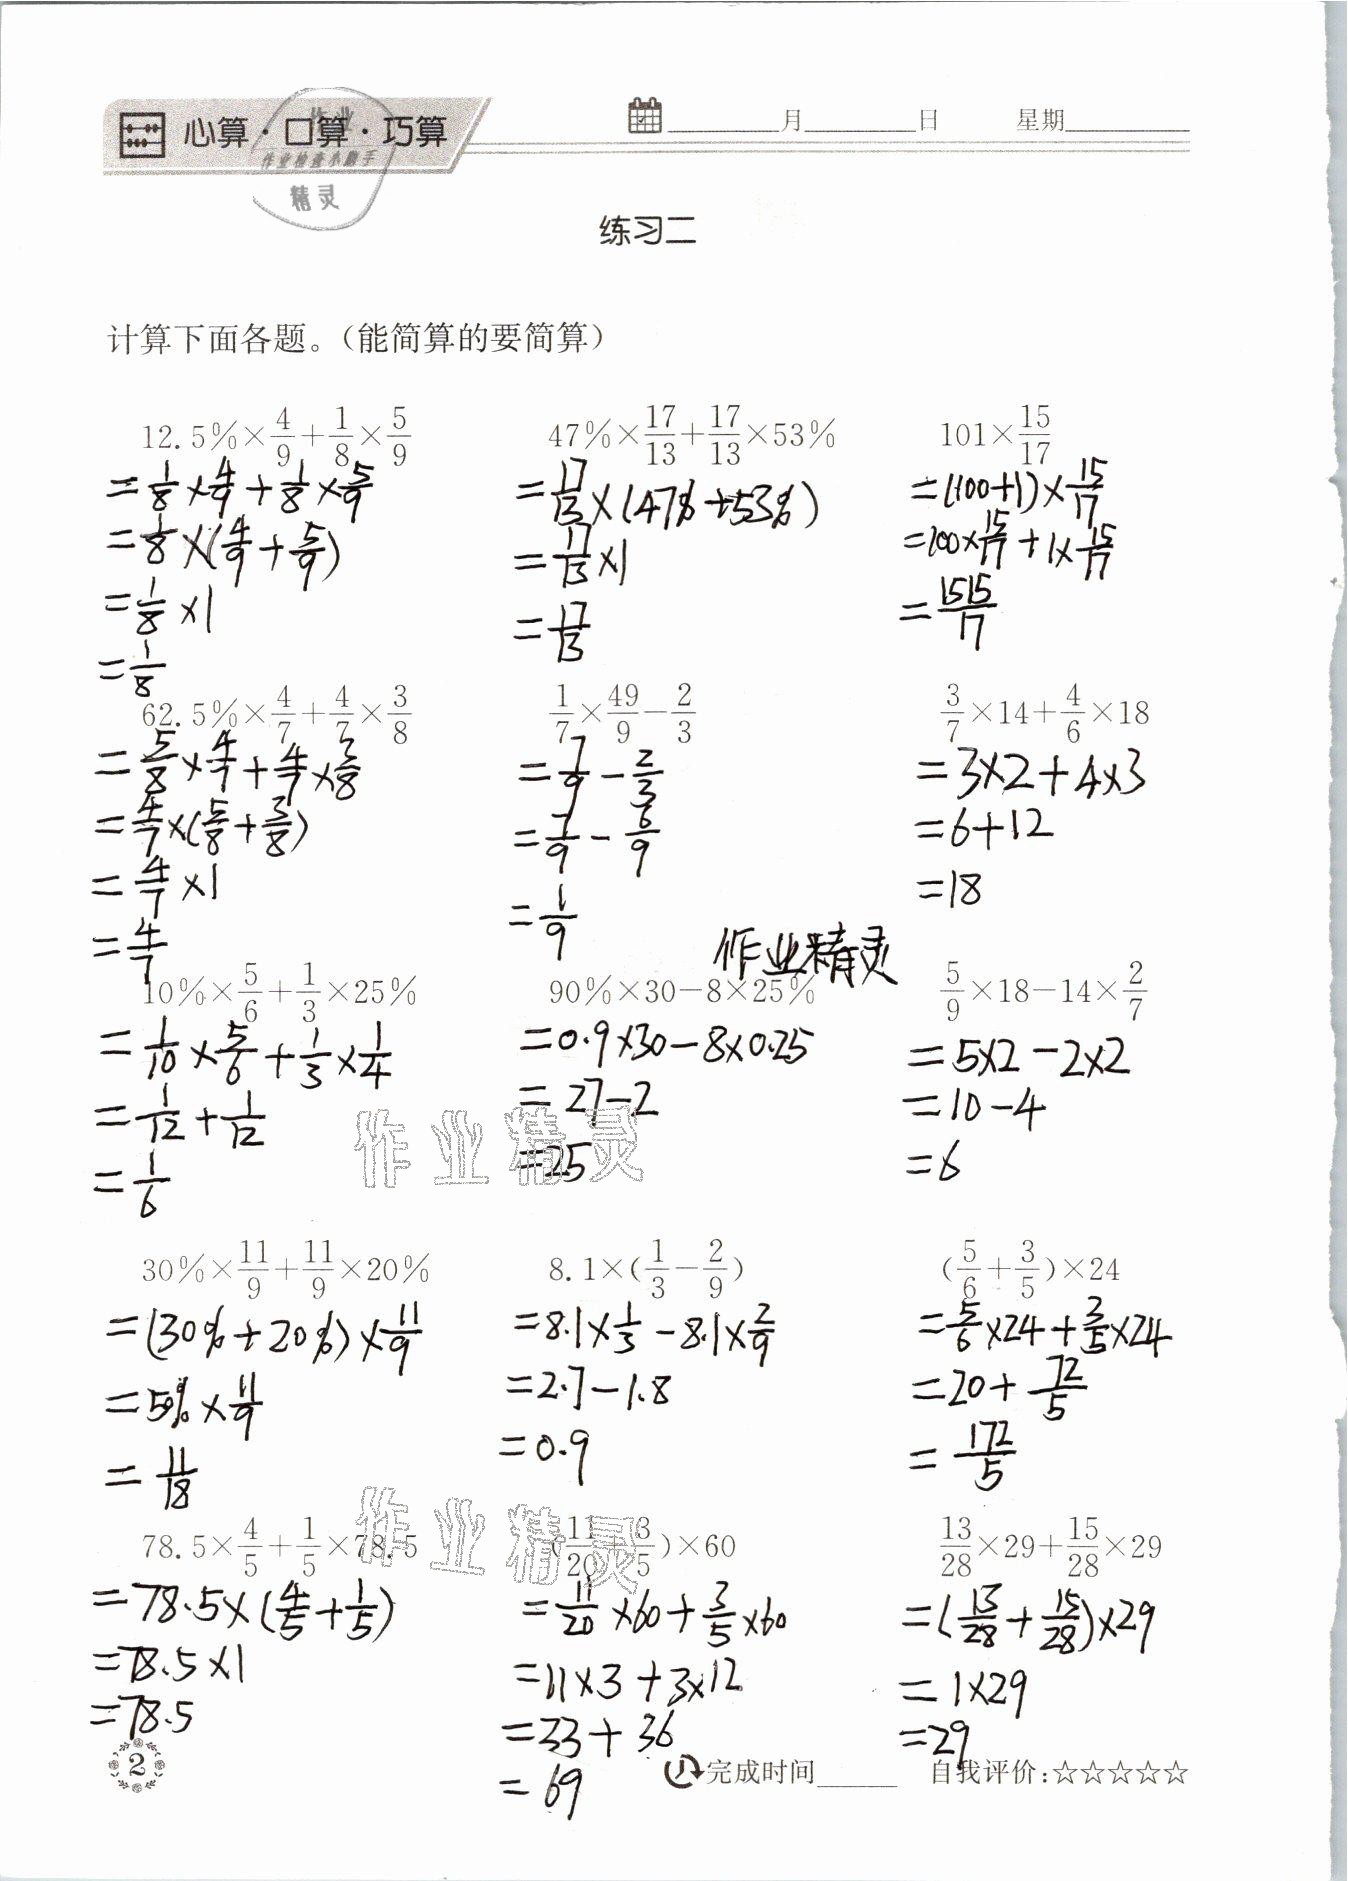 心算·口算·巧算 ____月____日 星期____
作业
作业检查小助手
精灵
练习二
计算下面各题。(能简算的要简算)
12.5%×4/9+1/8×5/9
=1/8×4/9+1/8×5/9
=1/8×(4/9+5/9)
=1/8×1
=1/8
47%×17/13+17/13×53%
=17/13×(47%+53%)
=17/13×1
=17/13
101×15/17
=(100+1)×15/17
=100×15/17+1×15/17
=1515/17
62.5%×4/7+4/7×3/8
=5/8×4/7+4/7×3/8
=4/7×(5/8+3/8)
=4/7×1
=4/7
1/7×49/9-2/3
=7/9-2/3
=7/9-6/9
=1/9
3/7×14+4/6×18
=3×2+4×3
=6+12
=18
作业精灵
10%×5/6+1/3×25%
=1/10×5/6+1/3×1/4
=1/12+1/12
=1/6
90%×30-8×25%
=0.9×30-8×0.25
=27-2
=25
5/9×18-14×2/7
=5×2-2×2
=10-4
=6
作业精灵
30%×11/9+11/9×20%
=(30%+20%)×11/9
=50%×11/9
=11/18
8.1×(1/3-2/9)
=8.1×1/3-8.1×2/9
=2.7-1.8
=0.9
(5/6+3/5)×24
=5/6×24+3/5×24
=20+72/5
=172/5
作业精灵
78.5×4/5+1/5×78.5
=78.5×(4/5+1/5)
=78.5×1
=78.5
(11/20 3/5)×60
=11/20×60+3/5×60
=11×3+3×12
=33+36
=69
13/28×29+15/28×29
=(13/28+15/28)×29
=1×29
=29
2 完成时间____ 自我评价:☆☆☆☆☆